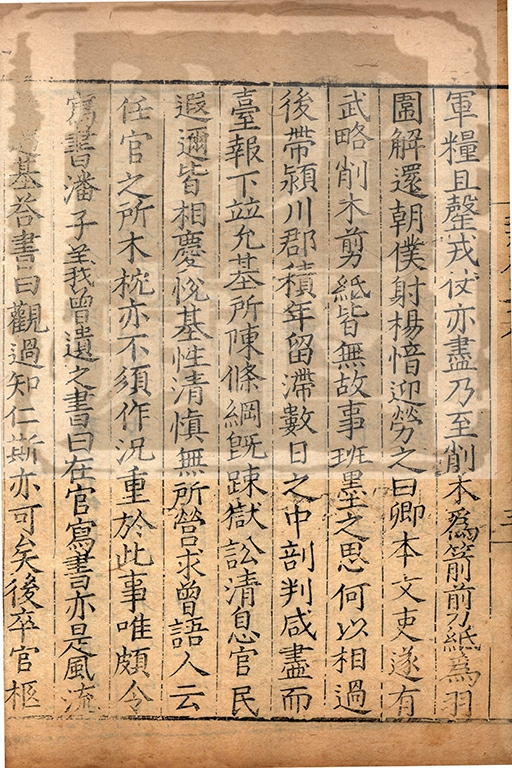 軍糧且罄戎仗亦盡乃至削木爲箭剪紙為羽
圍解還朝僕射楊愔迎勞之曰卿本文吏遂有
武略削木剪紙皆無故事班墨之思何以相過
後帶潁川郡積年留滯數日之中剖判咸盡而
臺報下竝允基所陳條綱旣踈獄訟清息官民
遐邇皆相慶恱基性清慎無所營求曾語人云
任官之所木枕亦不須作況重於此事唯頗令
寫書潘子義曾遺之書曰在官寫書亦是風流
過基荅書曰觀過知仁斯亦可矣後卒官柩